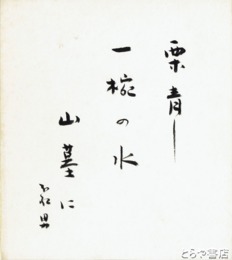 栗青し
一椀の水
山墓に
とらや書店